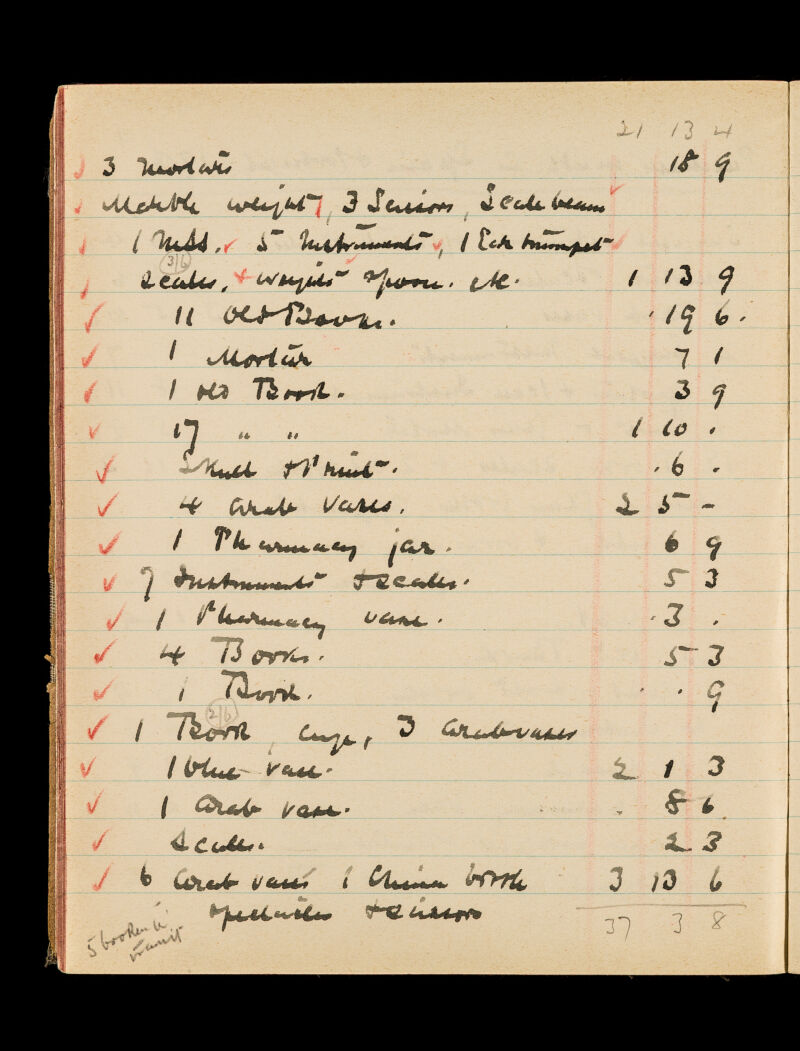 21 13 4
3 Mortars 18 9
Marble weight, 3 Scissors, Scale beam
1 Mss. 5 Instruments, 1 Ear trumpet
(3/6)
Scales, + weights spoon. etc. 1 13 9
11 Old Books. . 19 6.
1 Mortar 7 1
1 old Book. 3 9
17 " " 1 10 .
Skull + Print. . 6 .
4 Arab Vases. 2 5 -
1 Pharmacy jar. 6 9
7 Instruments + scales. 5 3
1 Pharmacy vase. . 3 .
4 Books. 5 3
1 Book. . . 9
(2/6)
1 Book, cup, 3 Arab vases
1 blue vase. 2 1 3
1 Arab vase. . 8 6
Scales. 2 3
6 Arab vases 1 China bottle 3 13 6
spectacles + scissors 37 3 8
5 broken in
transit